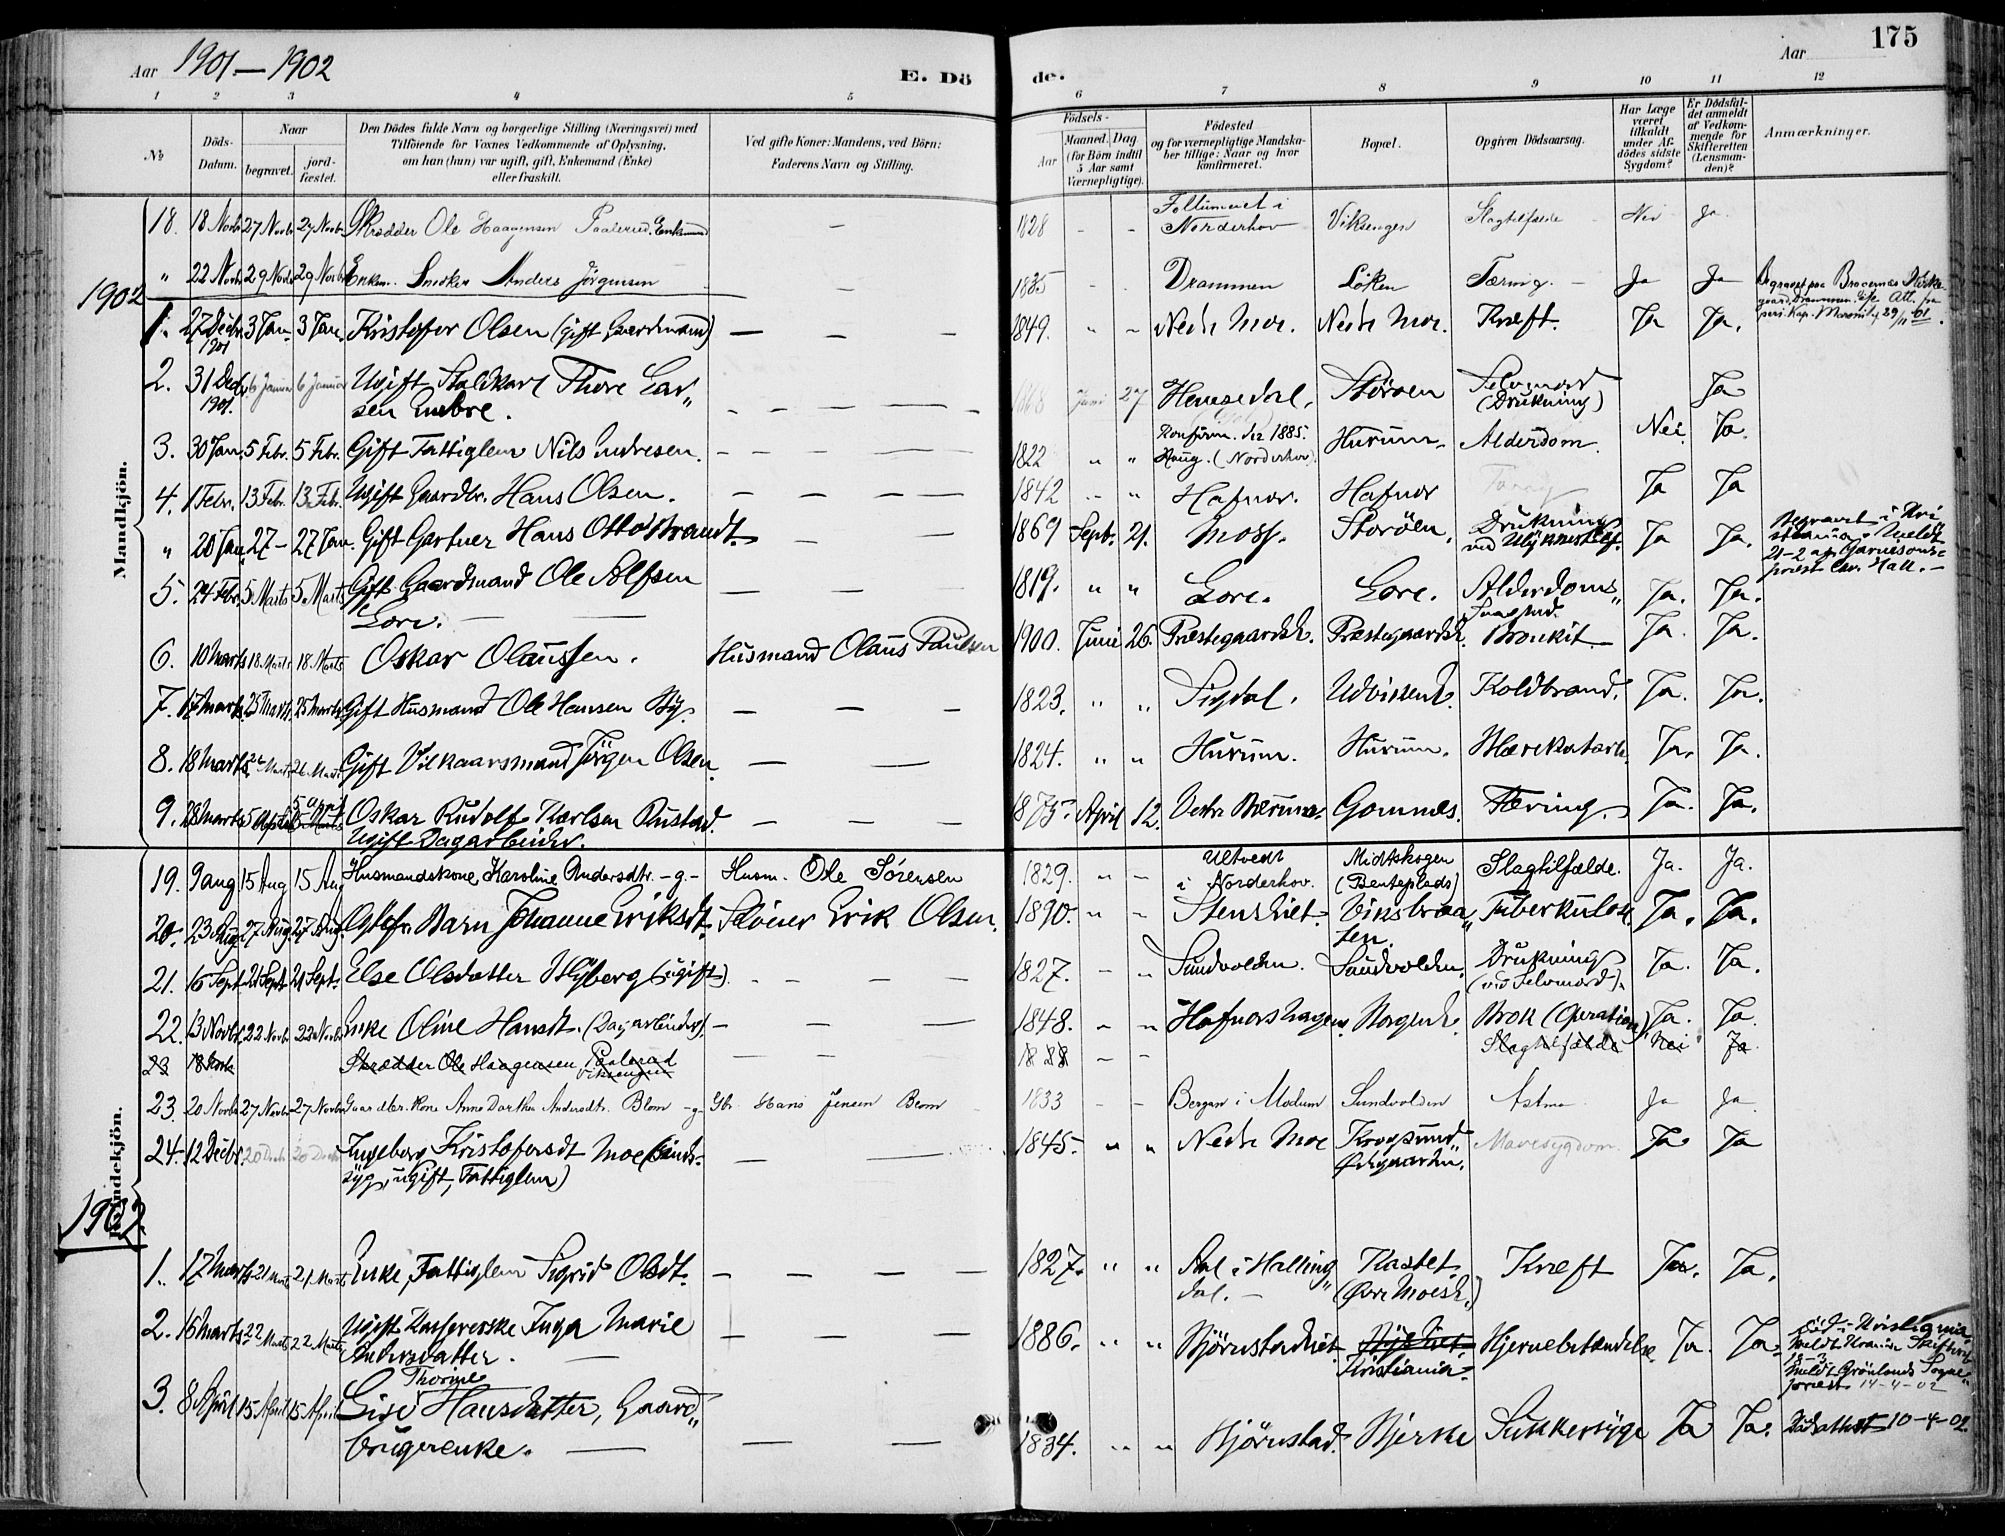 Aar 1901–1902 E. Dö
de. Aar 175
1 2 3 4 5 6 7 8 9 10 11 12
№ Döds-Datum. Naar begravet. jord-fæstet. Den Dödes fulde Navn og borgerlige Stilling (Næringsvei) med Tilföiende for Voxnes Vedkommende af Oplysning, om han (hun) var ugift, gift, Enkemand (Enke) eller fraskilt. Ved gifte Koner: Mandens, ved Börn: Faderens Navn og Stilling. Födsels- Aar Maaned. Dag (for Börn indtil 5 Aar samt Værnepligtige). Födested og for værnepligtige Mandskaber tillige: Naar og hvor konfirmeret. Bopæl. Opgiven Dödsaarsag. Har Læge været tilkaldt under Afdödes sidste Sygdom? Er Dödsfaldet anmeldt af Vedkommende for Skifteretten (Lensmanden)? Anmærkninger.
Mandkjön.
18. 18 Novbr 27 Novbr 27 Novbr Skrædder Ole Haagensen Paalerud. Enkemand – 1828 – – Feltumeiet i Norderhov Viksengen Slagtilfælde Nei Ja
" 22 Novbr 29 Novbr 29 Novbr Enkem. Snedker Anders Jörgensen – 1835 – – Drammen Löken Tæring. Ja Ja Begravet paa Bragernes Kirkegaard, Drammen
1902
1. 27 Decbr 1901 3 Jan. 3 Jan. Kristofer Olsen (gift Gaardmand) – – – 1849. " – Nedr Moe. Nedr Moe. Kræft. Ja Ja.
2. 31 Decbr 1901. 6 Januar 6 Januar Ugift Staldkarl Thore Larsen Embre. – – – 1868 Juni 27 Hemsedal, Konfirm. der 1885. Störöen Selvmord (Drukning) Ja
3. 30 Jan. 5 Febr. 5 Febr. Gift Fattiglem Nils Endresen. – – – 1822 " " Haug. (Norderhov) Hurum. Alderdom. Nei. Ja.
4. 1 Febr. 13 Febr. 13 Febr. Ugift Gaardbr. Hans Olsen. – – – 1842 " " Hafnor. Hafnor Ja Ja
" 20 Jan. 27 – 27 Jan. Gift Gartner Hans Otto Strandt. – – – 1869 Sept. 21. Moss. Storöen. Drukning ved Ulykkestilf. Ja Ja. Begravet i Kristiania.
5. 24 Febr. 5 Marts 5 Marts Gift Gaardmand Ole Alfsen Lore. – – – 1819. " " Lore. Lore. Alderdoms Svaghed. Ja. Ja.
6. 10 Marts 18 Marts 18 Marts Oskar Olaussen. Husmand Olaus Paulsen 1900. Juni 26. Præstegaardsh. Præstegaardsh. Bronkit Ja. Ja.
7. 17 Marts 25 Marts 25 Marts Gift Husmand Ole Hansen By. – – – 1823. " " Sigdal. Udviksenh. Koldbrand. Ja. Ja.
8. 18 Marts 26 Marts 26 Marts Gift Vilkaarsmand Jörgen Olsen. – – 1824. " " Hurum. Hurum. Blærekatarh. Ja. Ja.
9. 28 Marts 5 April 5 April 5 Marts Oskar Rudolf Karlsen Rustad. Ugift Dagarbeider. – – – 1875 April 12. Vestre Bærum. Gomnæs. Tæring. Ja. Ja.
Kvindekjön.
19. 9 Aug 15 Aug 15 Aug Husmandskone, Karoline Andersdtr. – g – Husm. Ole Sörensen 1829. – – Ultvedt i Norderhov. Midtskogen (Benteplads) Slagtilfælde. Ja. Ja.
20. 23 Aug 27 Aug. 27 Aug. Barn Johanne Eriksdt. Sloiner Erik Olsen. 1890. " – Stenshiet. Viksbraaten. Tuberkulose Ja. Ja.
21. 16 Sept 21 Sept 21 Sept. Else Olsdatter Nyberg (ugift). – – – 1827. – " Sundvolden. Sundvolden. Drukning (ved Selvmord). Ja. Ja.
22. 13 Novbr. 22 Novbr 22 Novbr Enke Oline Hansdt. (Dagarbeider). – – – 1848. " " Hafnorshagen. Borgenh. Brok (Operation) Ja. Ja.
23 18 Novbr Skrædder Ole Haagensen Paalerud Viksengen – – – 1828 – – Slagtilfælde Nei Ja
23 20 Novbr 27 Novbr 27 Novbr Gaardbr. Kone Anne Dorthea Andersdtr. Blom – g – Gbr. Hans Jensen Blom 1833 – – Bergan i Modum Sundvolden Astma Ja Ja
24. 12 Decbr. 20 Decbr 20 Decbr Ingeborg Kristofersdt Moe (Sindssyg, ugift, Fattiglem) – – 1845. " " Nedr Moe Krogsund, Öihgaarden. Mavesygdom Ja Ja
1902.
1. 17 Marts 21 Marts 21 Marts Enke, Fattiglem Sigrid Olsdt. – – – – 1827. " " Aal i Hallingdal. – Kastet (Övre Moesh.) Kræft Ja. Ja.
2. 16 Marts 22 Marts 22 Marts Ugift Kassererske Inga Marie Andersdatter. – – – 1886. " " Bjórnstadhiet. Kristiania. Hjernebetændelse. Ja. Ja. Död i Kristiania Meldt Grönlands Sognepræst 14–4–02
3. 8 April 15 April 15 April Lise Thorine Hansdatter, Gaardbrugerenke. – – – 1834. " " Bjórnstad. Bjerke Sukkersyge Ja Ja. Dödsattest 10–4–02.